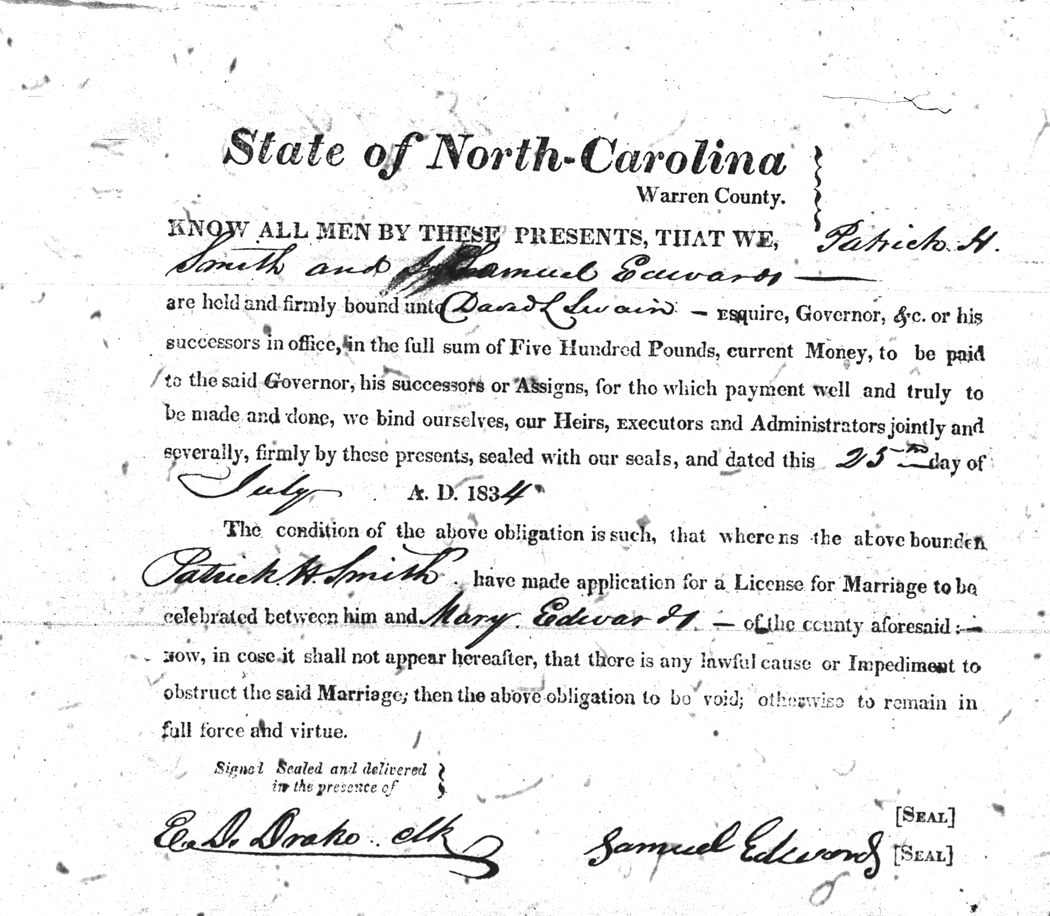 State of North-Carolina
Warren County.
KNOW ALL MEN BY THESE PRESENTS, THAT WE, Patrick H.
Smith and Samuel Edwards
are held and firmly bound unto David L Swain — Esquire, Governor, &c. or his
successors in office, in the full sum of Five Hundred Pounds, current Money, to be paid
to the said Governor, his successors or Assigns, for the which payment well and truly to
be made and done, we bind ourselves, our Heirs, Executors and Administrators jointly and
severally, firmly by these presents, sealed with our seals, and dated this 25th day of
July A. D. 1834
The condition of the above obligation is such, that whereas the above bounden
Patrick H. Smith have made application for a License for Marriage to be
celebrated between him and Mary Edwards — of the county aforesaid :—
now, in case it shall not appear hereafter, that there is any lawful cause or Impediment to
obstruct the said Marriage; then the above obligation to be void; otherwise to remain in
full force and virtue.
Signed Sealed and delivered
in the presence of
[SEAL]
E. D. Drake clk Samuel Edwards [SEAL]